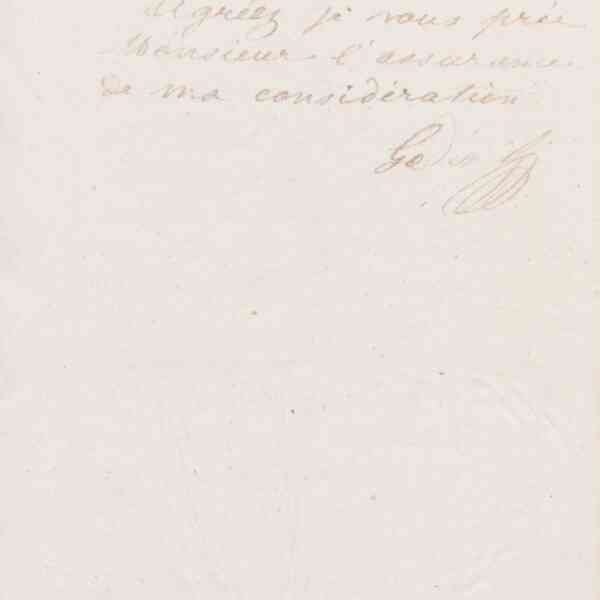 Agréez je vous prie
Monsieur l'assurance
de ma considération